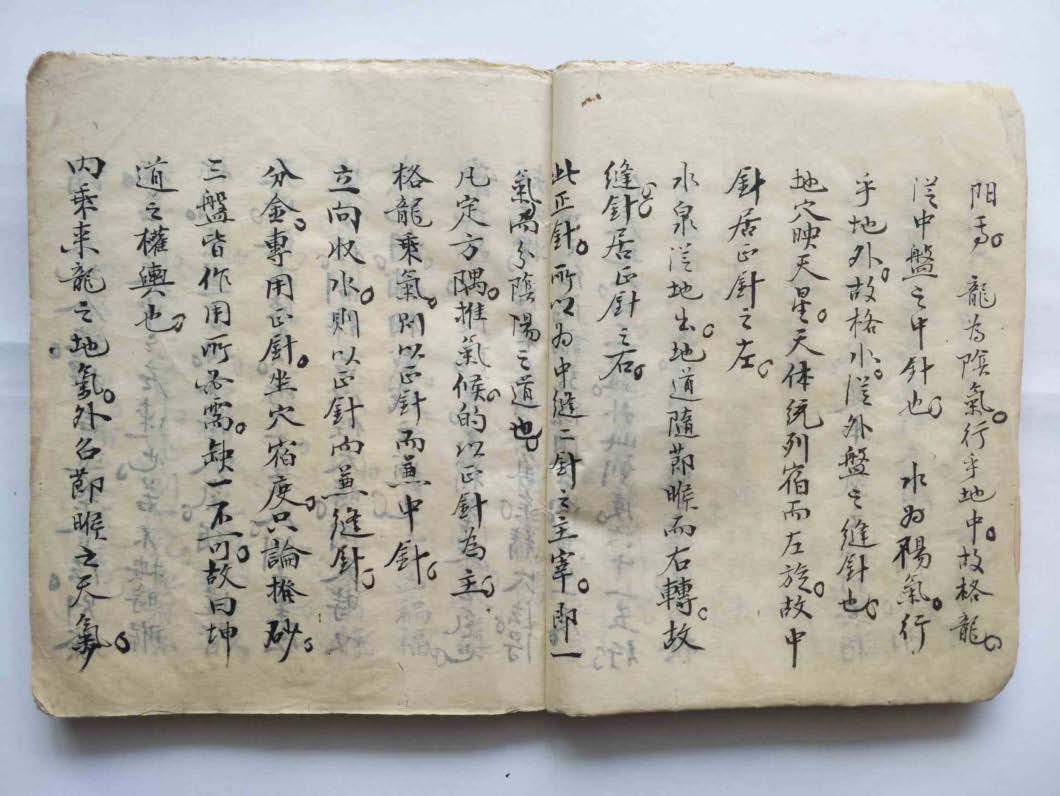 阳奇。龍為陰氣。行乎地中。故格龍。
從中盤之中針也。水為陽氣。行
乎地外。故格水。從外盤之縫針也。
地穴映天星。天体統列宿而左旋。故中
針居正針之左。
水泉從地出。地道隨節候而右轉。故
縫針居正針之右。
此正針。所以为中縫二針之主宰。即一
氣而分陰陽之道也。
凡定方隅。推氣候。的以正針為主。
格龍乘氣。則以正針而兼中針。
立向收水。則以正針而兼縫針。
分金專用正針。坐穴宿度。只論撥砂。
三盤皆作用所必需。缺一不可。故曰坤
道之權輿也。
内乘来龍之地氣。外占節候之天氣。